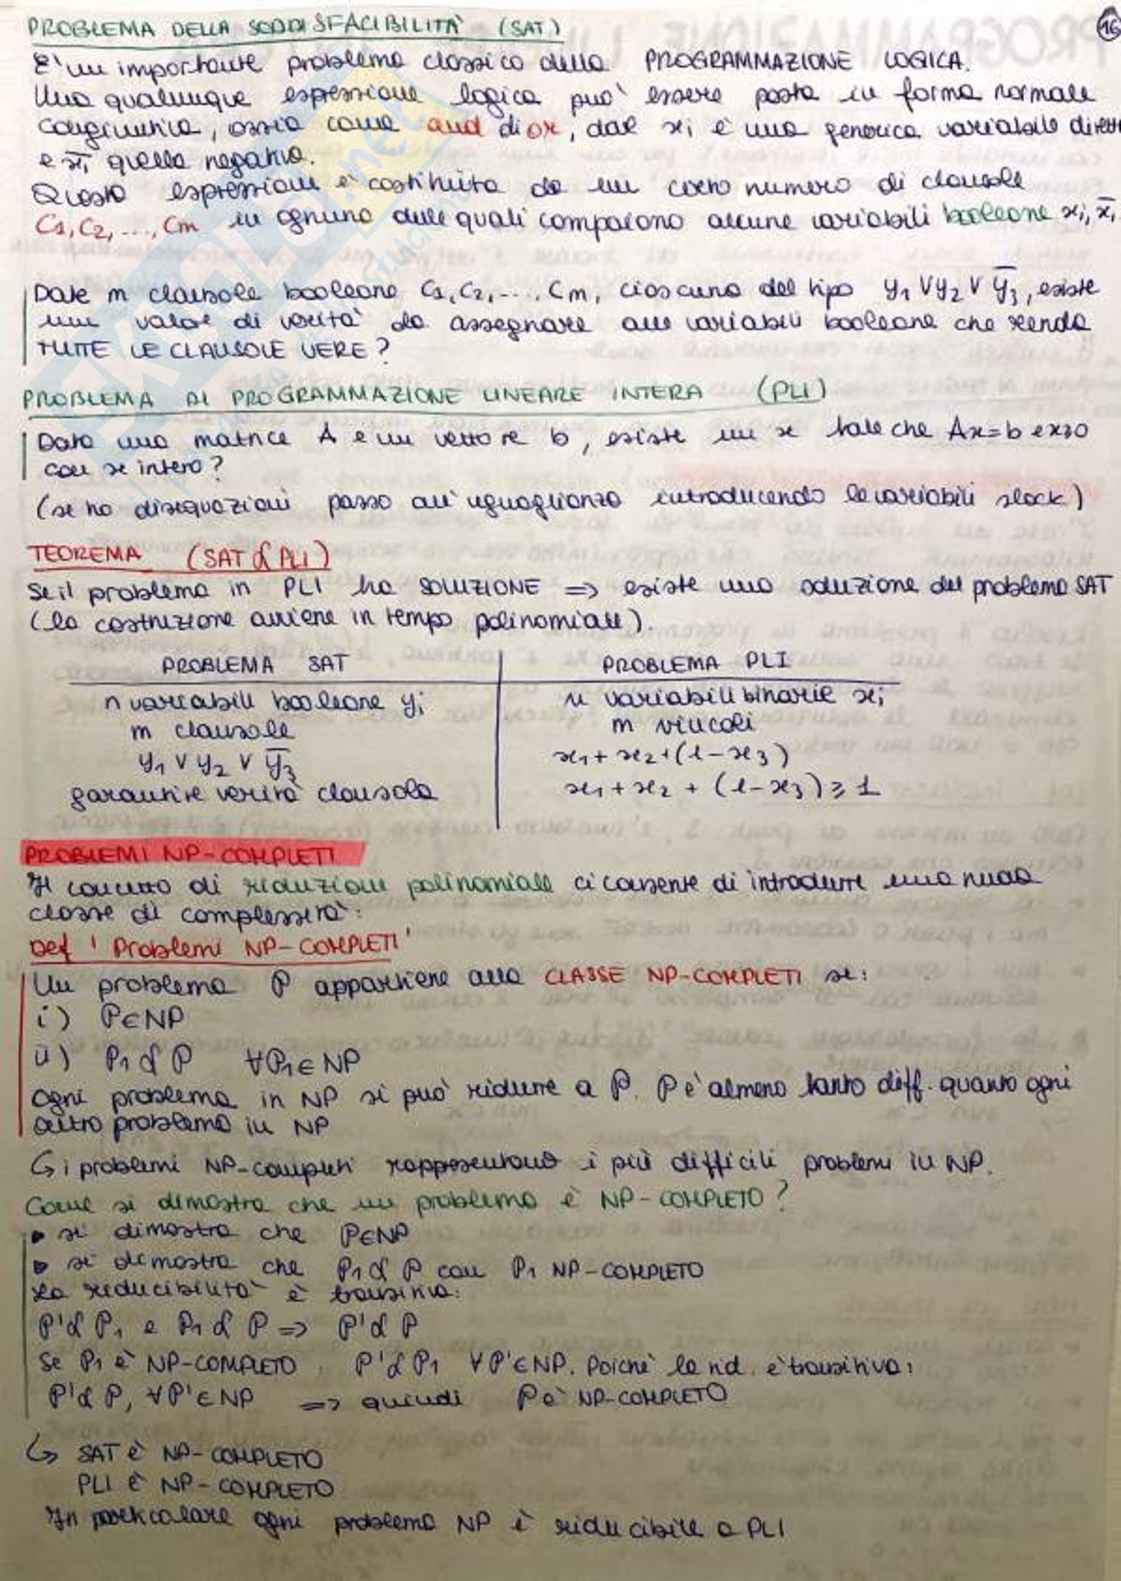 16
PROBLEMA DELLA SODDISFACIBILITÀ (SAT)
E' un importante problema classico della PROGRAMMAZIONE LOGICA.
Una qualunque espressione logica può essere posta in forma normale
congiuntiva, ossia come and di or, dove xi è una generica variabile diretta
e x̄i quella negativa.
Questa espressione è costituita da un certo numero di clausole
C1, C2, ..., Cm in ognuna delle quali compaiono alcune variabili booleane xi, x̄i
Date m clausole booleane C1, C2, ..., Cm, ciascuna del tipo y1 ∨ y2 ∨ ȳ3, esiste
un valore di verità da assegnare alle variabili booleane che renda
TUTTE LE CLAUSOLE VERE?
PROBLEMA DI PROGRAMMAZIONE LINEARE INTERA (PLI)
Data una matrice A e un vettore b, esiste un x tale che Ax=b e x≥0
con x intero?
(se ho disequazioni passo all'uguaglianza introducendo le variabili slack)
TEOREMA (SAT α PLI)
Se il problema in PLI ha SOLUZIONE => esiste una soluzione del problema SAT
(la costruzione avviene in tempo polinomiale).
PROBLEMA SAT PROBLEMA PLI
n variabili booleane yi n variabili binarie xi
m clausole m vincoli
y1 ∨ y2 ∨ ȳ3 x1 + x2 + (1-x3)
garantire verità clausola x1 + x2 + (1-x3) ≥ 1
PROBLEMI NP-COMPLETI
Il concetto di riduzione polinomiale ci consente di introdurre una nuova
classe di complessità:
Def 'Problemi NP-COMPLETI'
Un problema P appartiene alla CLASSE NP-COMPLETI se:
i) P∈NP
ii) P1 α P ∀P1∈NP
Ogni problema in NP si può ridurre a P. P è almeno tanto diff. quanto ogni
altro problema in NP
↳ i problemi NP-completi rappresentano i più difficili problemi in NP.
Come si dimostra che un problema è NP-COMPLETO?
▸ si dimostra che P∈NP
▸ si dimostra che P1 α P con P1 NP-COMPLETO
La riducibilità è transitiva:
P' α P1 e P1 α P => P' α P
Se P1 è NP-COMPLETO, P' α P1 ∀P'∈NP. Poichè la rid. è transitiva:
P' α P, ∀P'∈NP => quindi P è NP-COMPLETO
↳ SAT È NP-COMPLETO
PLI È NP-COMPLETO
In particolare ogni problema NP è riducibile a PLI